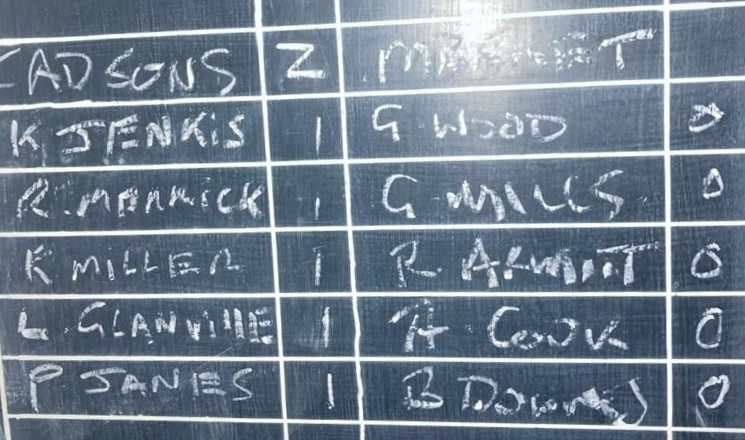 CADSONS 2
K JENKIS 1 G. WOOD 0
R. MARRICK 1 G. MILLS 0
K MILLER 1 R 0
L. GLANVILLE 1 A. COOK 0
P JANES 1 B DOWNES 0